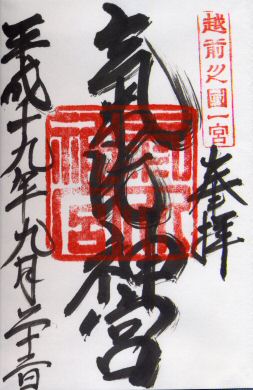 越前之國一宮
奉拝
氣比神宮
平成十九年九月二十三日